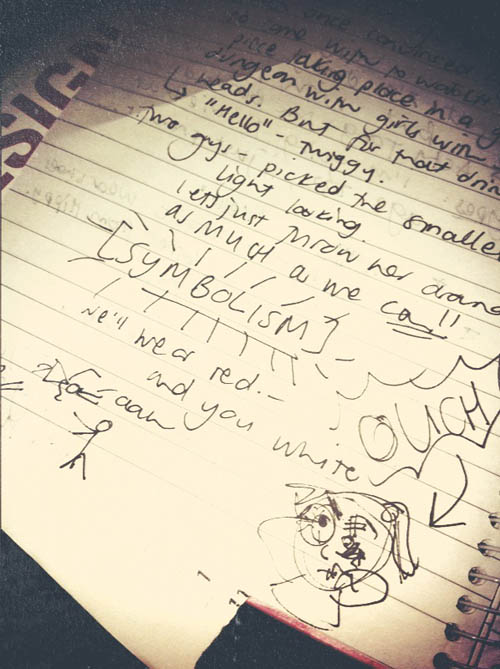 ESIGN
once convinced
to one with to watch
piece taking place in a
dungeon with girls with
heads. But for that
↳ "Hello" - Twiggy.
Two guys - picked the smalle
light looking.
let's just throw her
as MUCH as we can!!
[SYMBOLISM]
we'll wear red. -
and you white
OUCH